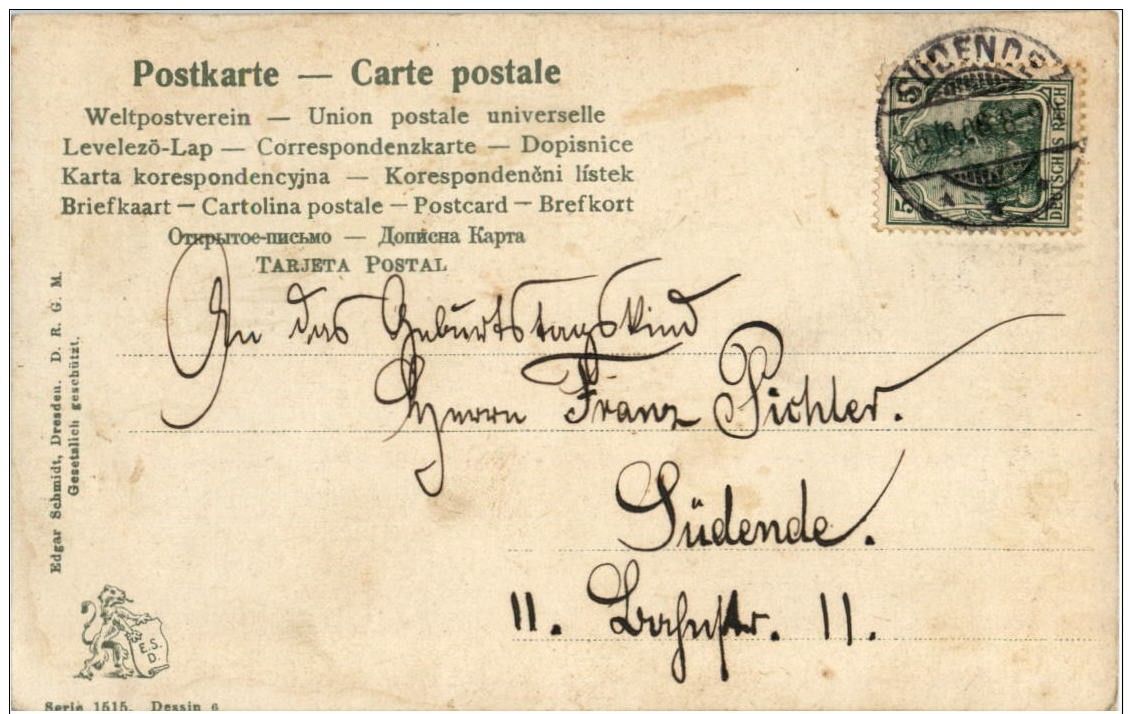 Postkarte — Carte postale
Weltpostverein — Union postale universelle
Levelező-Lap — Correspondenzkarte — Dopisnice
Karta korespondencyjna — Korespondenčni lístek
Briefkaart — Cartolina postale — Postcard — Brefkort
Открытое-письмо — Дописна Карта
TARJETA POSTAL
SÜDENDE
5
5
DEUTSCHES REICH
An das Geburtstagskind
Herrn Franz Pichler.
Südende.
11. Bahnstr. 11.
Edgar Schmidt, Dresden. D. R. G. M.
Gesetzlich geschützt.
Serie 1515. Dessin 6